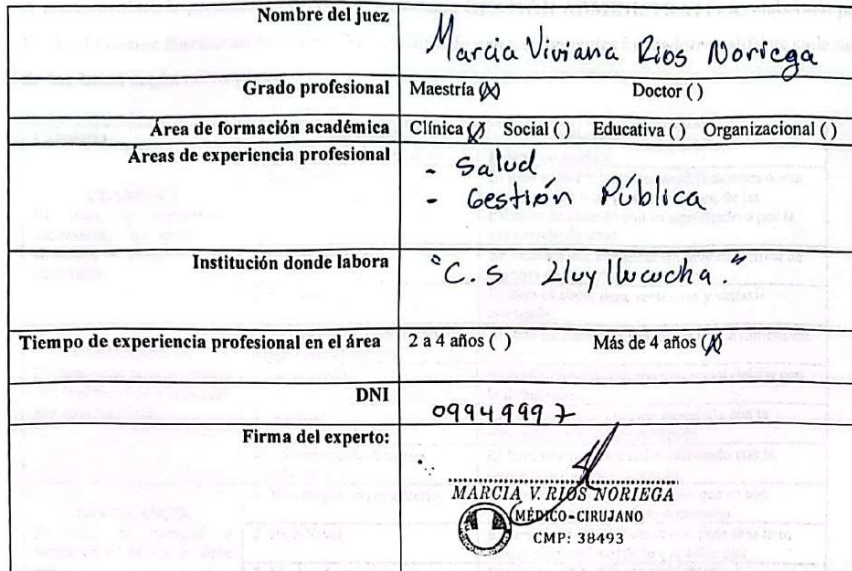 Nombre del juez Marcia Viviana Rios Noriega
Grado profesional Maestría (X) Doctor ( )
Área de formación académica Clínica (X) Social ( ) Educativa ( ) Organizacional ( )
Áreas de experiencia profesional - Salud
- Gestión Pública
Institución donde labora "C.S Lluyllucucha."
Tiempo de experiencia profesional en el área 2 a 4 años ( ) Más de 4 años (X)
DNI 09949997
Firma del experto:
MARCIA V. RIOS NORIEGA
MÉDICO-CIRUJANO
CMP: 38493